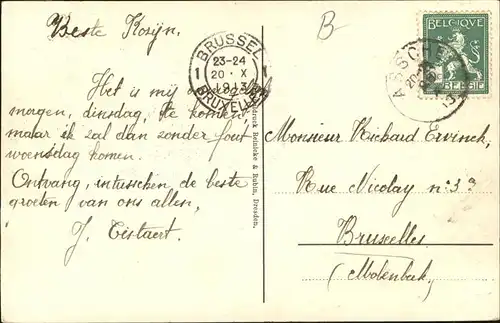 Beste Kozijn.
Het is mij onmogelijk
morgen, dinsdag, te komen
maar ik zal dan zonder fout
woensdag komen.
Ontvang, intusschen de beste
groeten van ons allen,
J. Tistaert.
B
BRUSSEL
1 23-24 1
20 · X
1913
BRUXELLES
BELGIQUE
BELGIË
ASSCHE
Reinicke & Rubin, Dresden.
Monsieur Richard Ervinck,
Rue Nicolay n: 39
Bruxelles.
(Molenbeek)